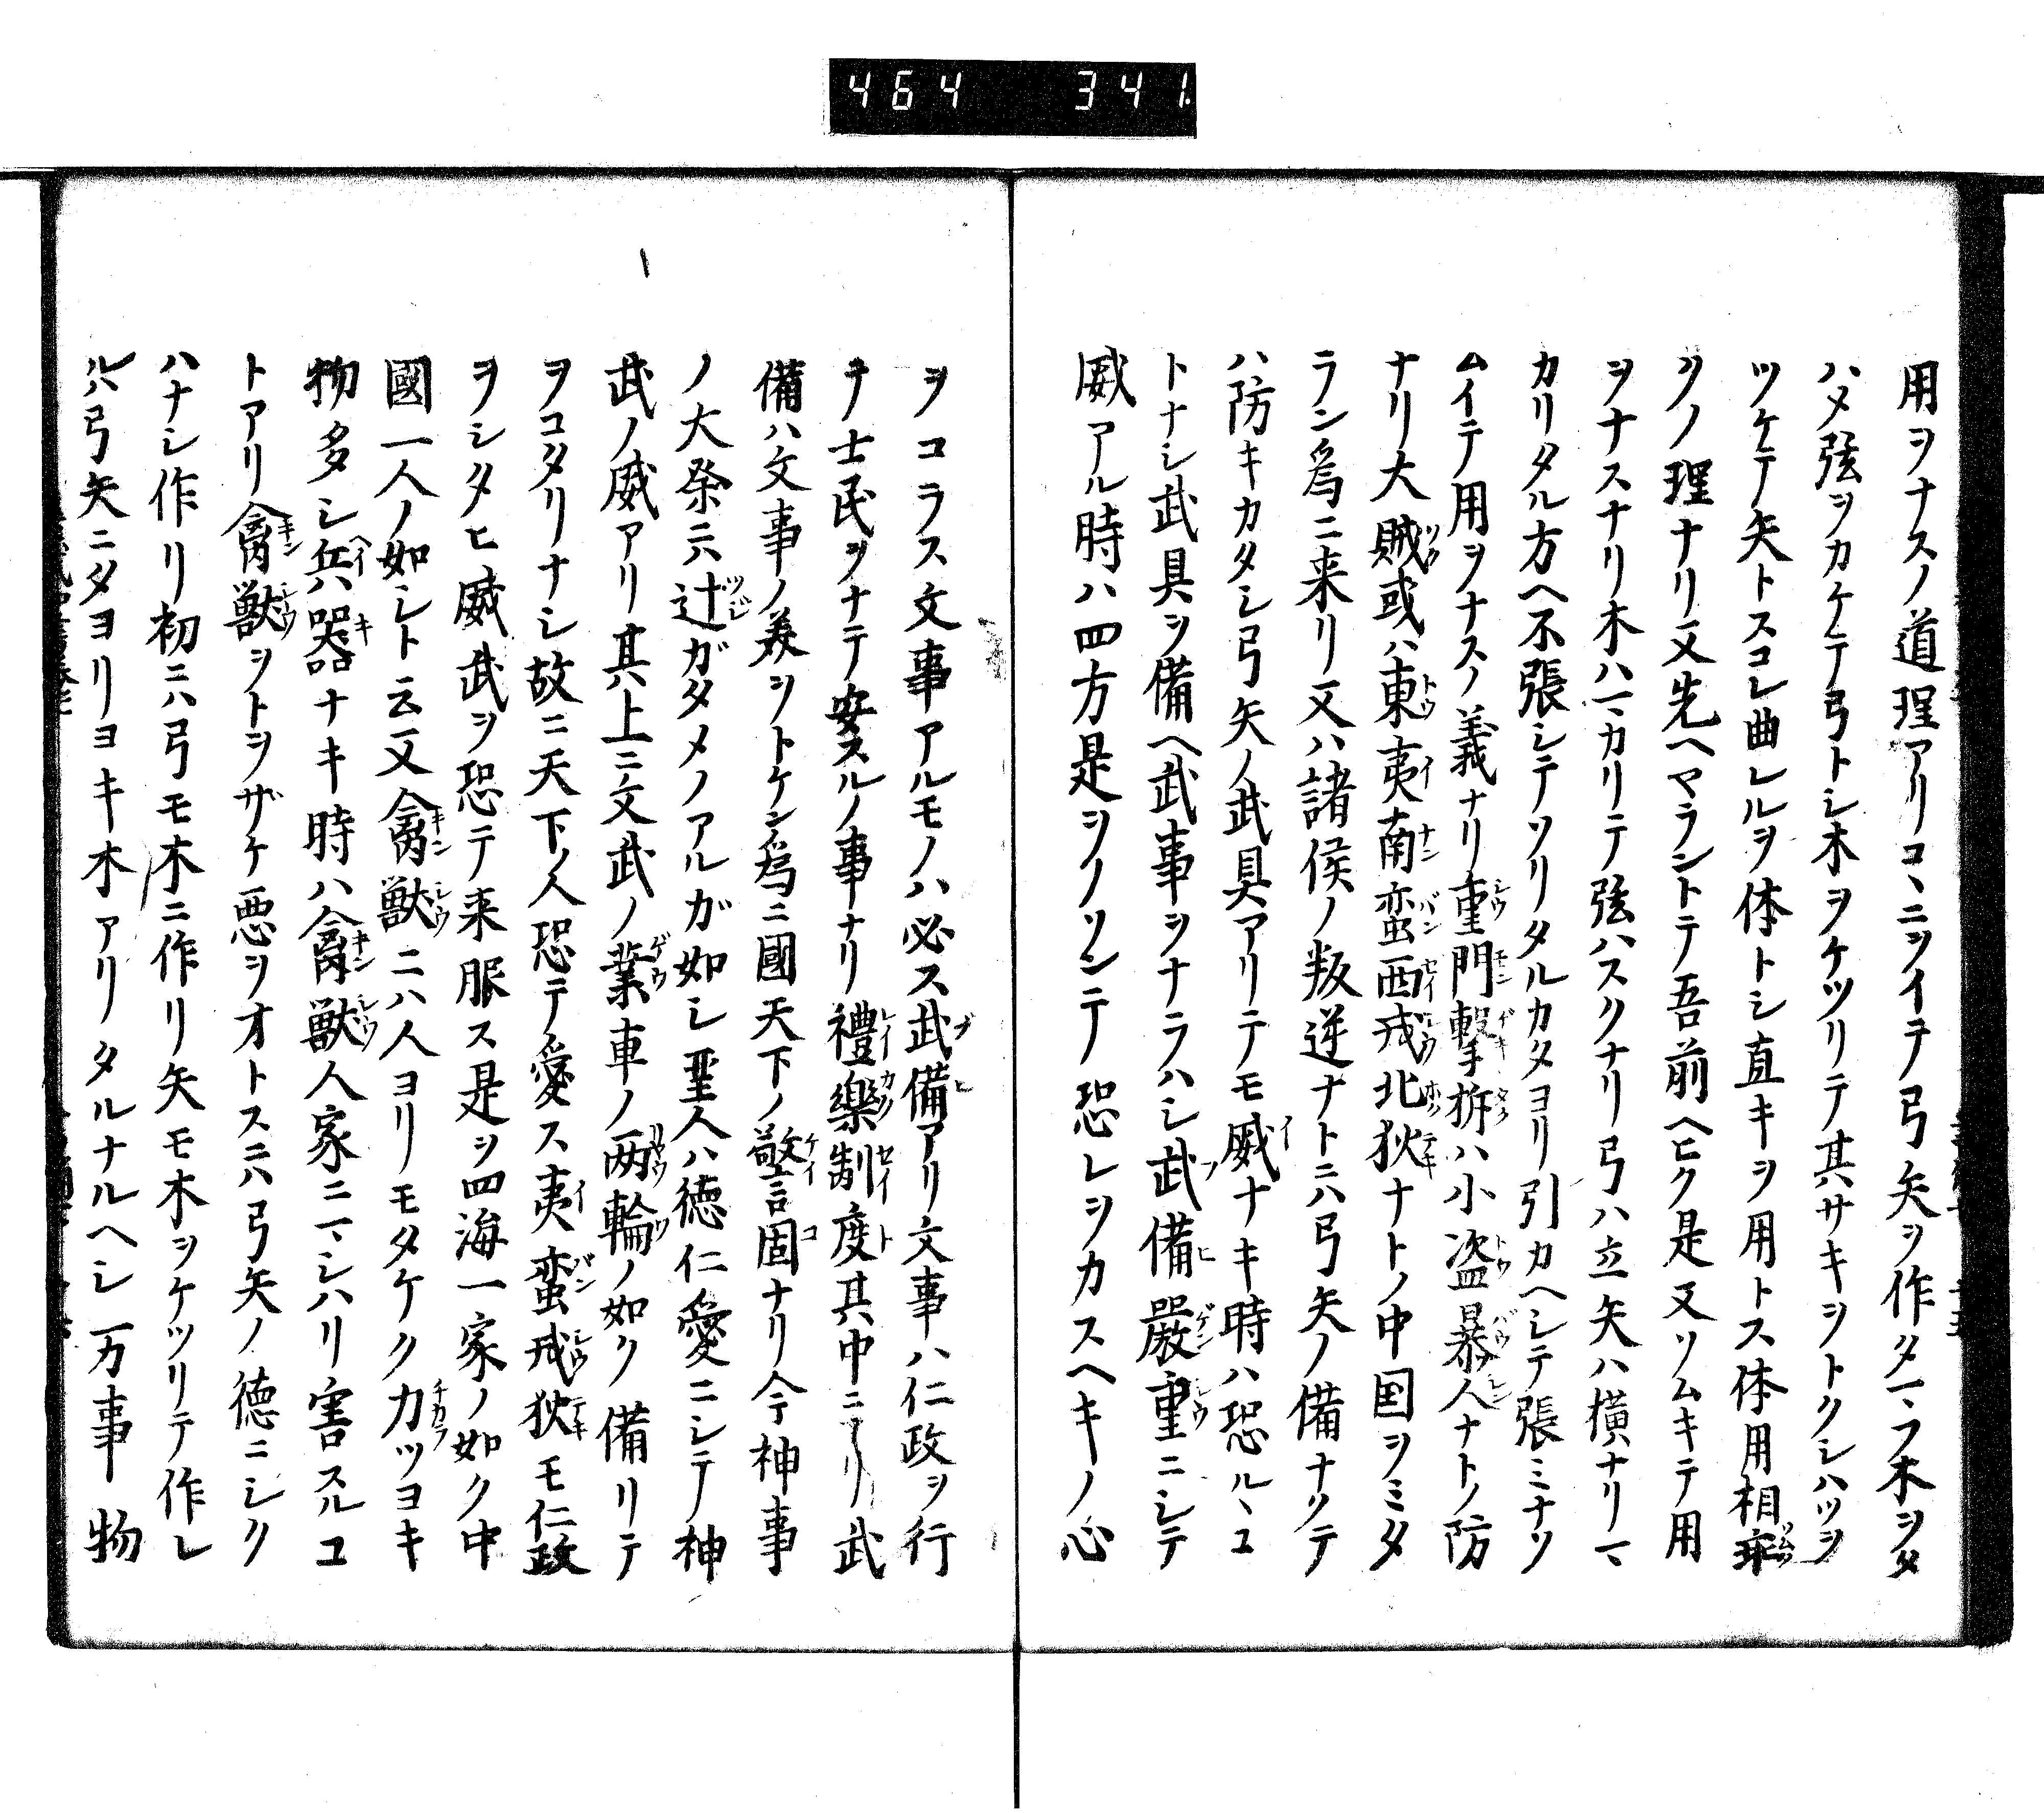 464 341
用ヲナスノ道理アリコヽニヲイテ弓矢ヲ作タマフ木ヲタ
ハメ弦ヲカケテ弓トシ木ヲケツリテ其サキヲトクシハツヲ
ツケテ矢トスコレ曲レルヲ体トシ直キヲ用トス体用相
ノ理ナリ又先ヘマラントテ吾前ヘヒク是又ソムキテ用
ヲナスナリ木ハマカリテ弦ハスクナリ弓ハ立矢ハ横ナリマ
カリタル方ヘ不張シテソリタルカタヨリ引カヘシテ張ミナソ
ムイテ用ヲナスノ義ナリ重門撃柝ハ小盗暴人ナトノ防
ナリ大賊或ハ東夷南蛮西戎北狄ナトノ中国ヲミタ
ラン為ニ来リ又ハ諸侯ノ叛逆ナトニハ弓矢ノ備ナクテ
ハ防キカタシ弓矢ノ武具アリテモ威ナキ時ハ恐ルヽコ
トナシ武具ヲ備ヘ武事ヲナラハシ武備嚴重ニシテ
威アル時ハ四方是ヲノソンテ恐レヲカスヘキノ心
ヲコラス文事アルモノハ必ス武備アリ文事ハ仁政ヲ行
テ士民ヲナテ安スルノ事ナリ禮樂制度其中ニアリ武
備ハ文事ノ美ヲトケン為ニ國天下ノ警固ナリ今神事
ノ大祭ニハ辻ガタメノアルガ如シ聖人ハ徳仁愛ニシテ神
武ノ威アリ其上ニ文武ノ業車ノ両輪ノ如ク備リテ
ヲコタリナシ故ニ天下ノ人恐テ愛ス夷蛮戎狄モ仁政
ヲシタヒ威武ヲ恐テ来服ス是ヲ四海一家ノ如ク中
國一人ノ如シト云又禽獣ニハ人ヨリモタケク力ツヨキ
物多シ兵器ナキ時ハ禽獣人家ニマシハリ害スルコ
トアリ禽獣ヲトヲザケ悪ヲオトスニハ弓矢ノ徳ニシク
ハナシ作リ初ニハ弓モ木ニ作リ矢モ木ヲケツリテ作レ
ルハ弓矢ニタヨリヨキ木アリタルナルヘシ万事物